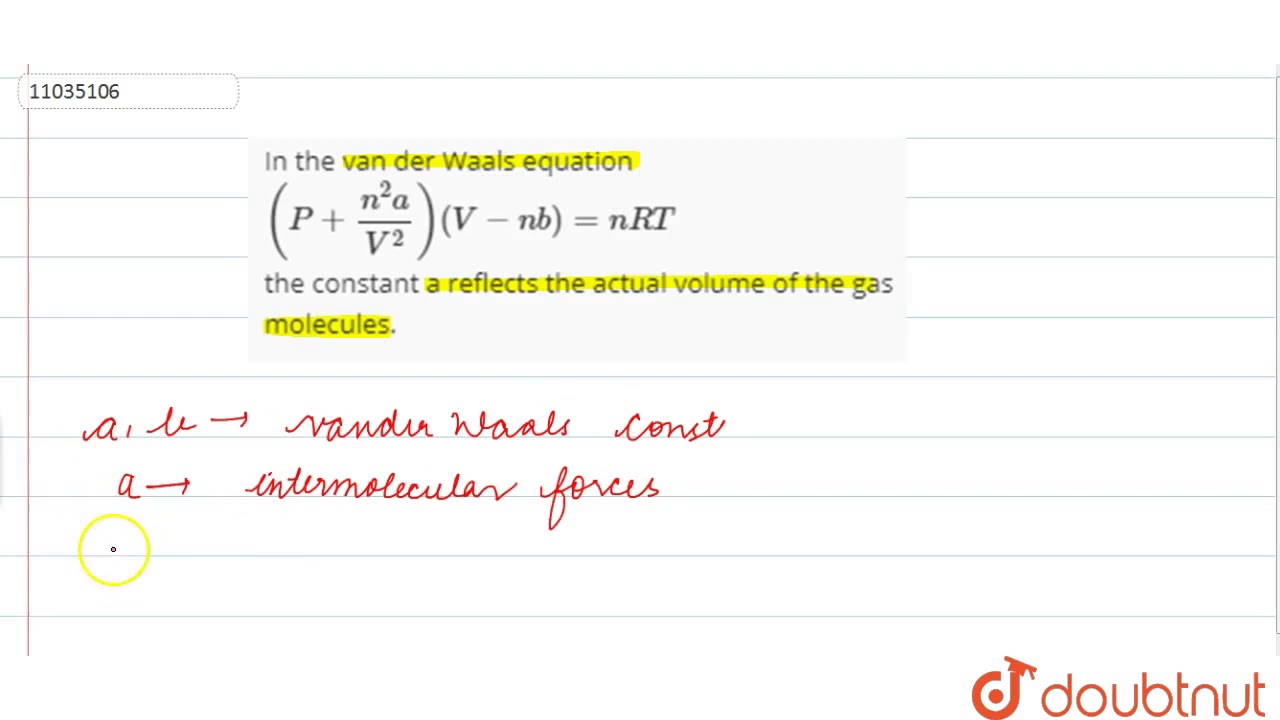 11035106
In the van der Waals equation
(P + n²a/V²)(V − nb) = nRT
the constant a reflects the actual volume of the gas
molecules.
a, b → vander Waals const
a → intermolecular forces
doubtnut